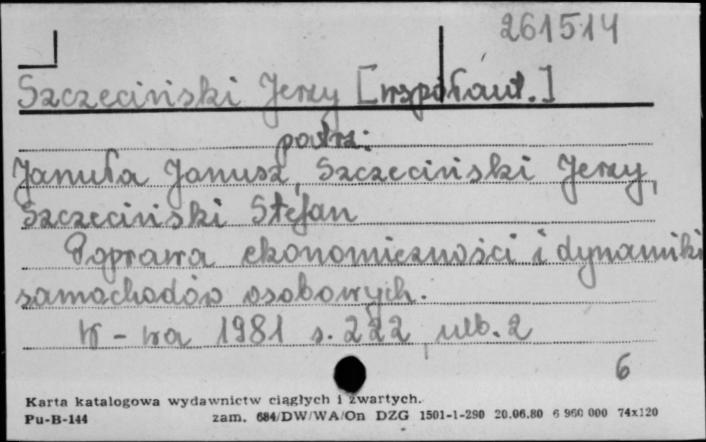 261514
Szczeciński Jerzy [współaut.]
patrz:
Januła Janusz, Szczeciński Jerzy,
Szczeciński Stefan
Poprawa ekonomiczności i dynamiki
samochodów osobowych.
W-wa 1981 s. 222, nlb. 2
6
Karta katalogowa wydawnictw ciągłych i zwartych.
Pu-B-144 zam. 684/DW/WA/On DZG 1501-1-290 20.06.80 6 960 000 74x120